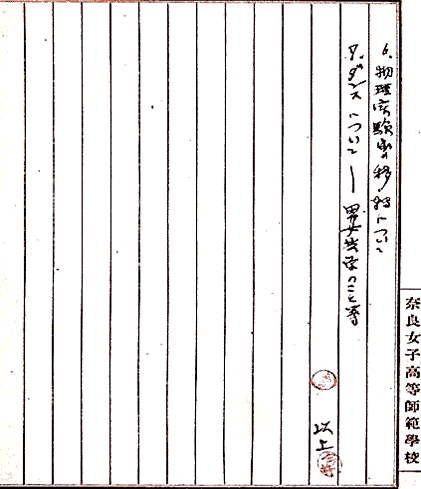 6.物理実験室の移轉について
7.ダンスについて―男女共学のこと等
以上
奈良女子高等師範學校